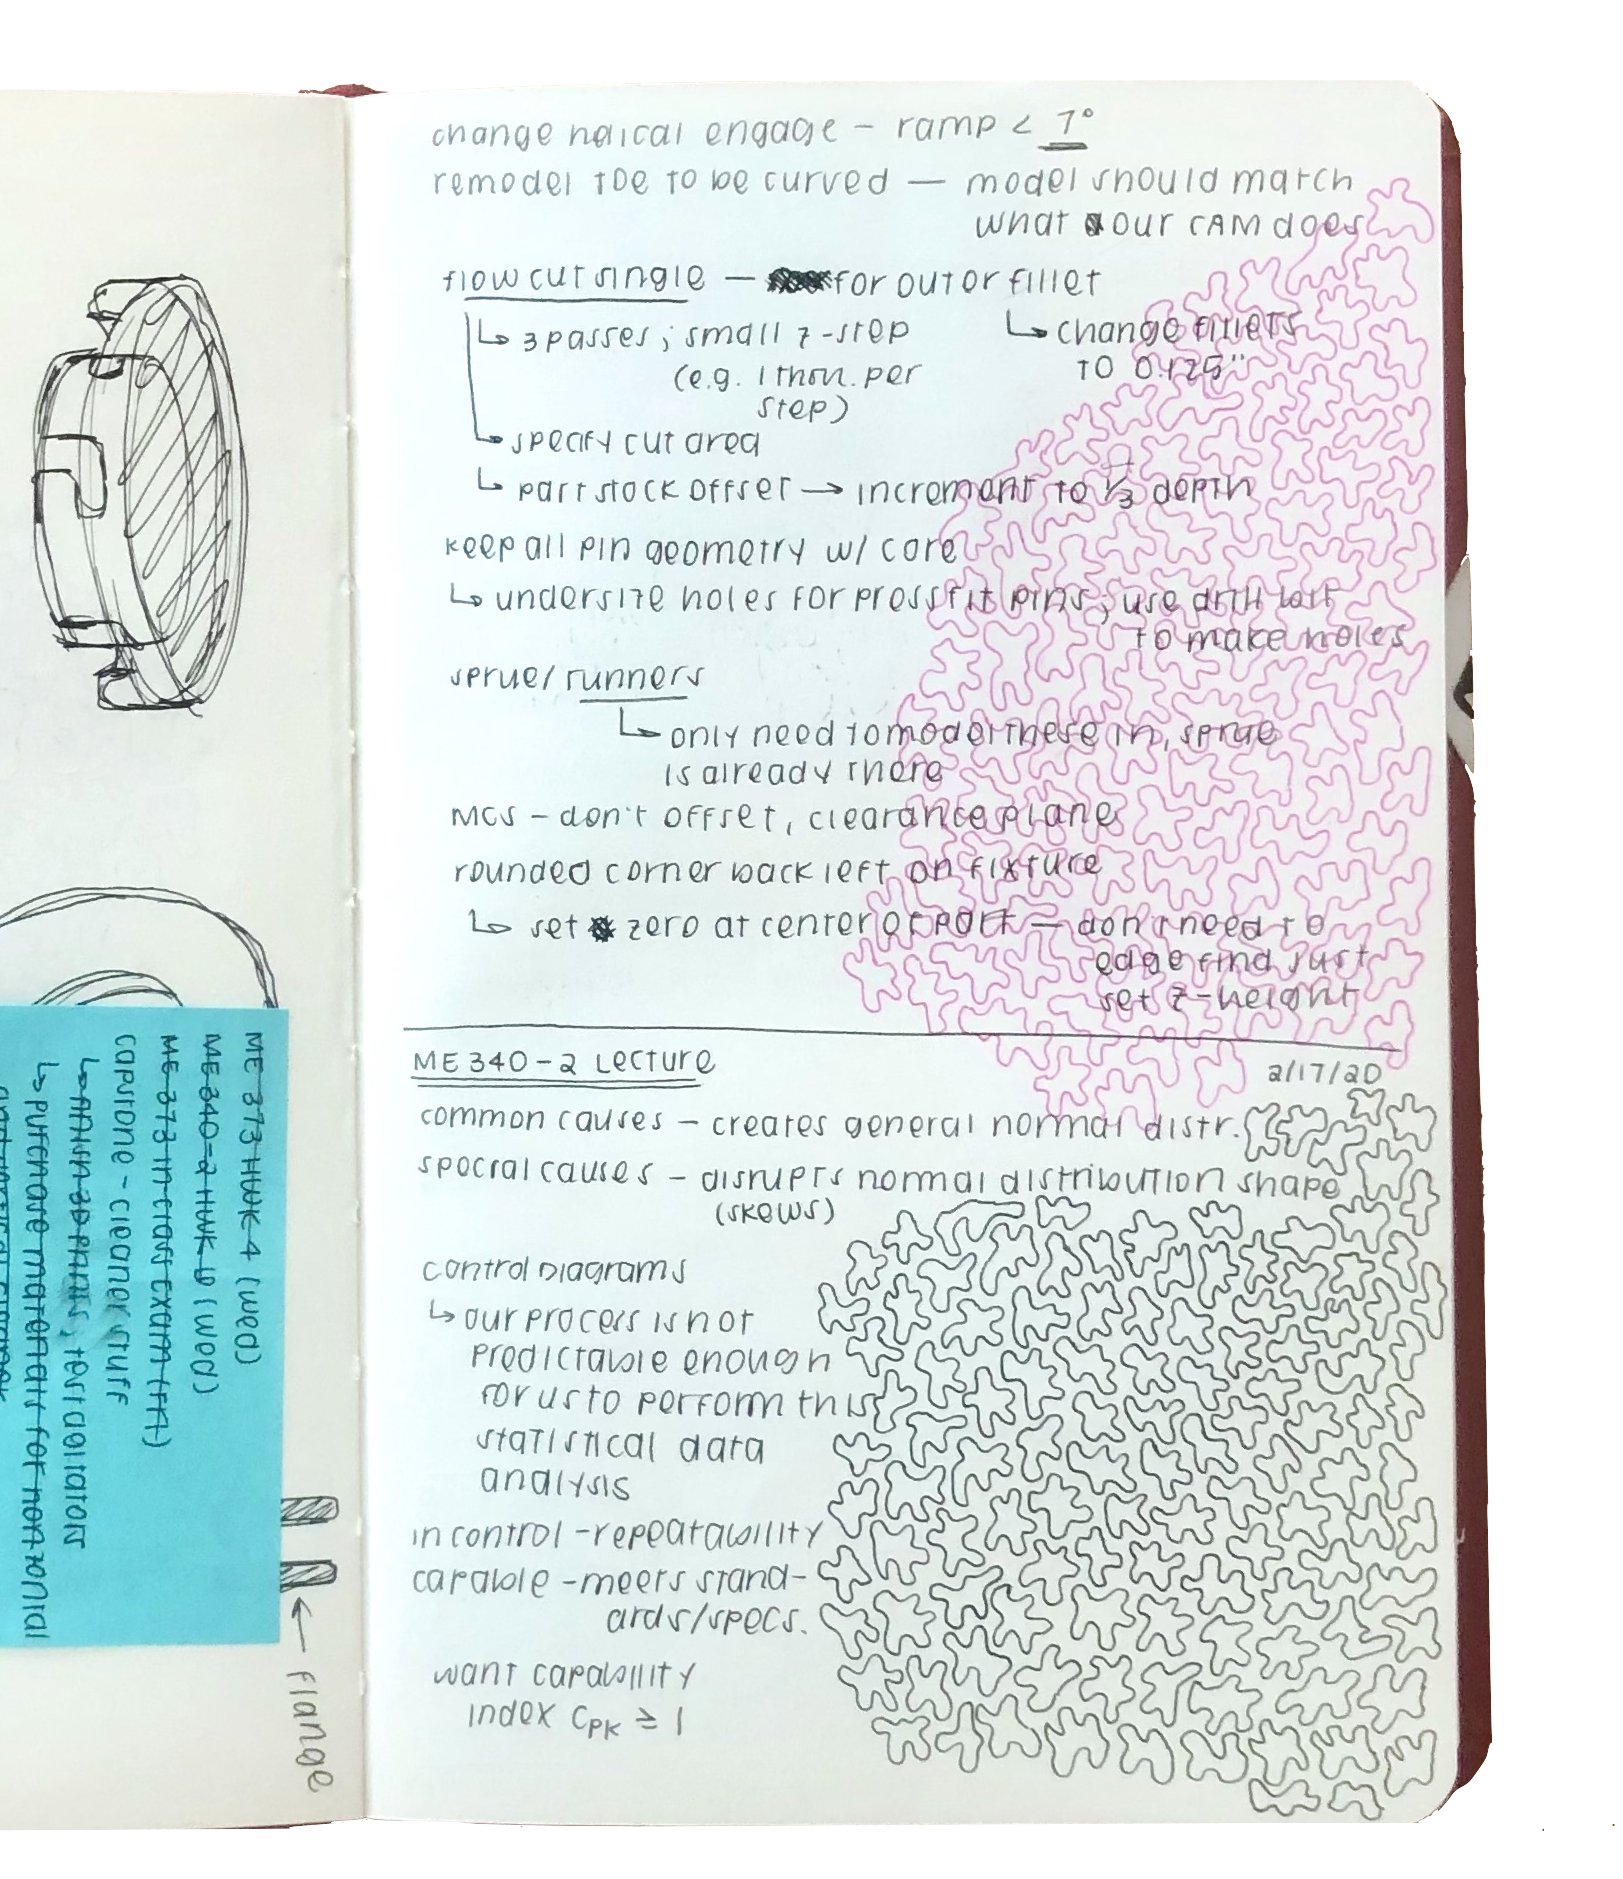 change helical engage – ramp < 7°
remodel TDE to be curved — model should match
what our CAM does
flow cut single — for outer fillet
↳ 3 passes; small z-step
(e.g. 1 thou. per
step)
↳ change fillets
to 0.125"
↳ specify cut area
↳ part stock offset → increment to 1/3 depth
keep all pin geometry w/ core
↳ undersize holes for press fit pins; use drill last
to make holes
sprue/runners
↳ only need to model these in, sprue
is already there
MCS – don't offset, clearance plane
rounded corner back left on fixture
↳ set zero at center of part — don't need to
edge find just
set z-height
ME 340-2 Lecture
2/17/20
common causes – creates general normal distr.
special causes – disrupts normal distribution shape
(skews)
control diagrams
↳ our process is not
predictable enough
for us to perform this
statistical data
analysis
in control – repeatability
capable – meets stand-
ards/specs.
want capability
index CPK ≥ 1
ME 373 HWK 4 (wed)
ME 340-2 HWK 6 (wed)
ME 373 in class exam (fri)
capstone - cleaner stuff
↳ finish 3D prints, test agitators
↳ purchase materials for non zonial
← flange